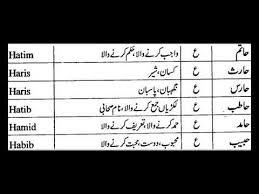 حاتم ع واجب کرنے والا، حکم کرنے والا Hatim
حارث ع کسان، شیر Haris
حارس ع نگہبان، پاسبان Haris
حاطب ع لکڑیاں جمع کرنے والا، نام صحابی Hatib
حامد ع حمد کرنے والا، تعریف کرنے والا Hamid
حبیب ع محبوب، دوست، محبت کرنے والا Habib